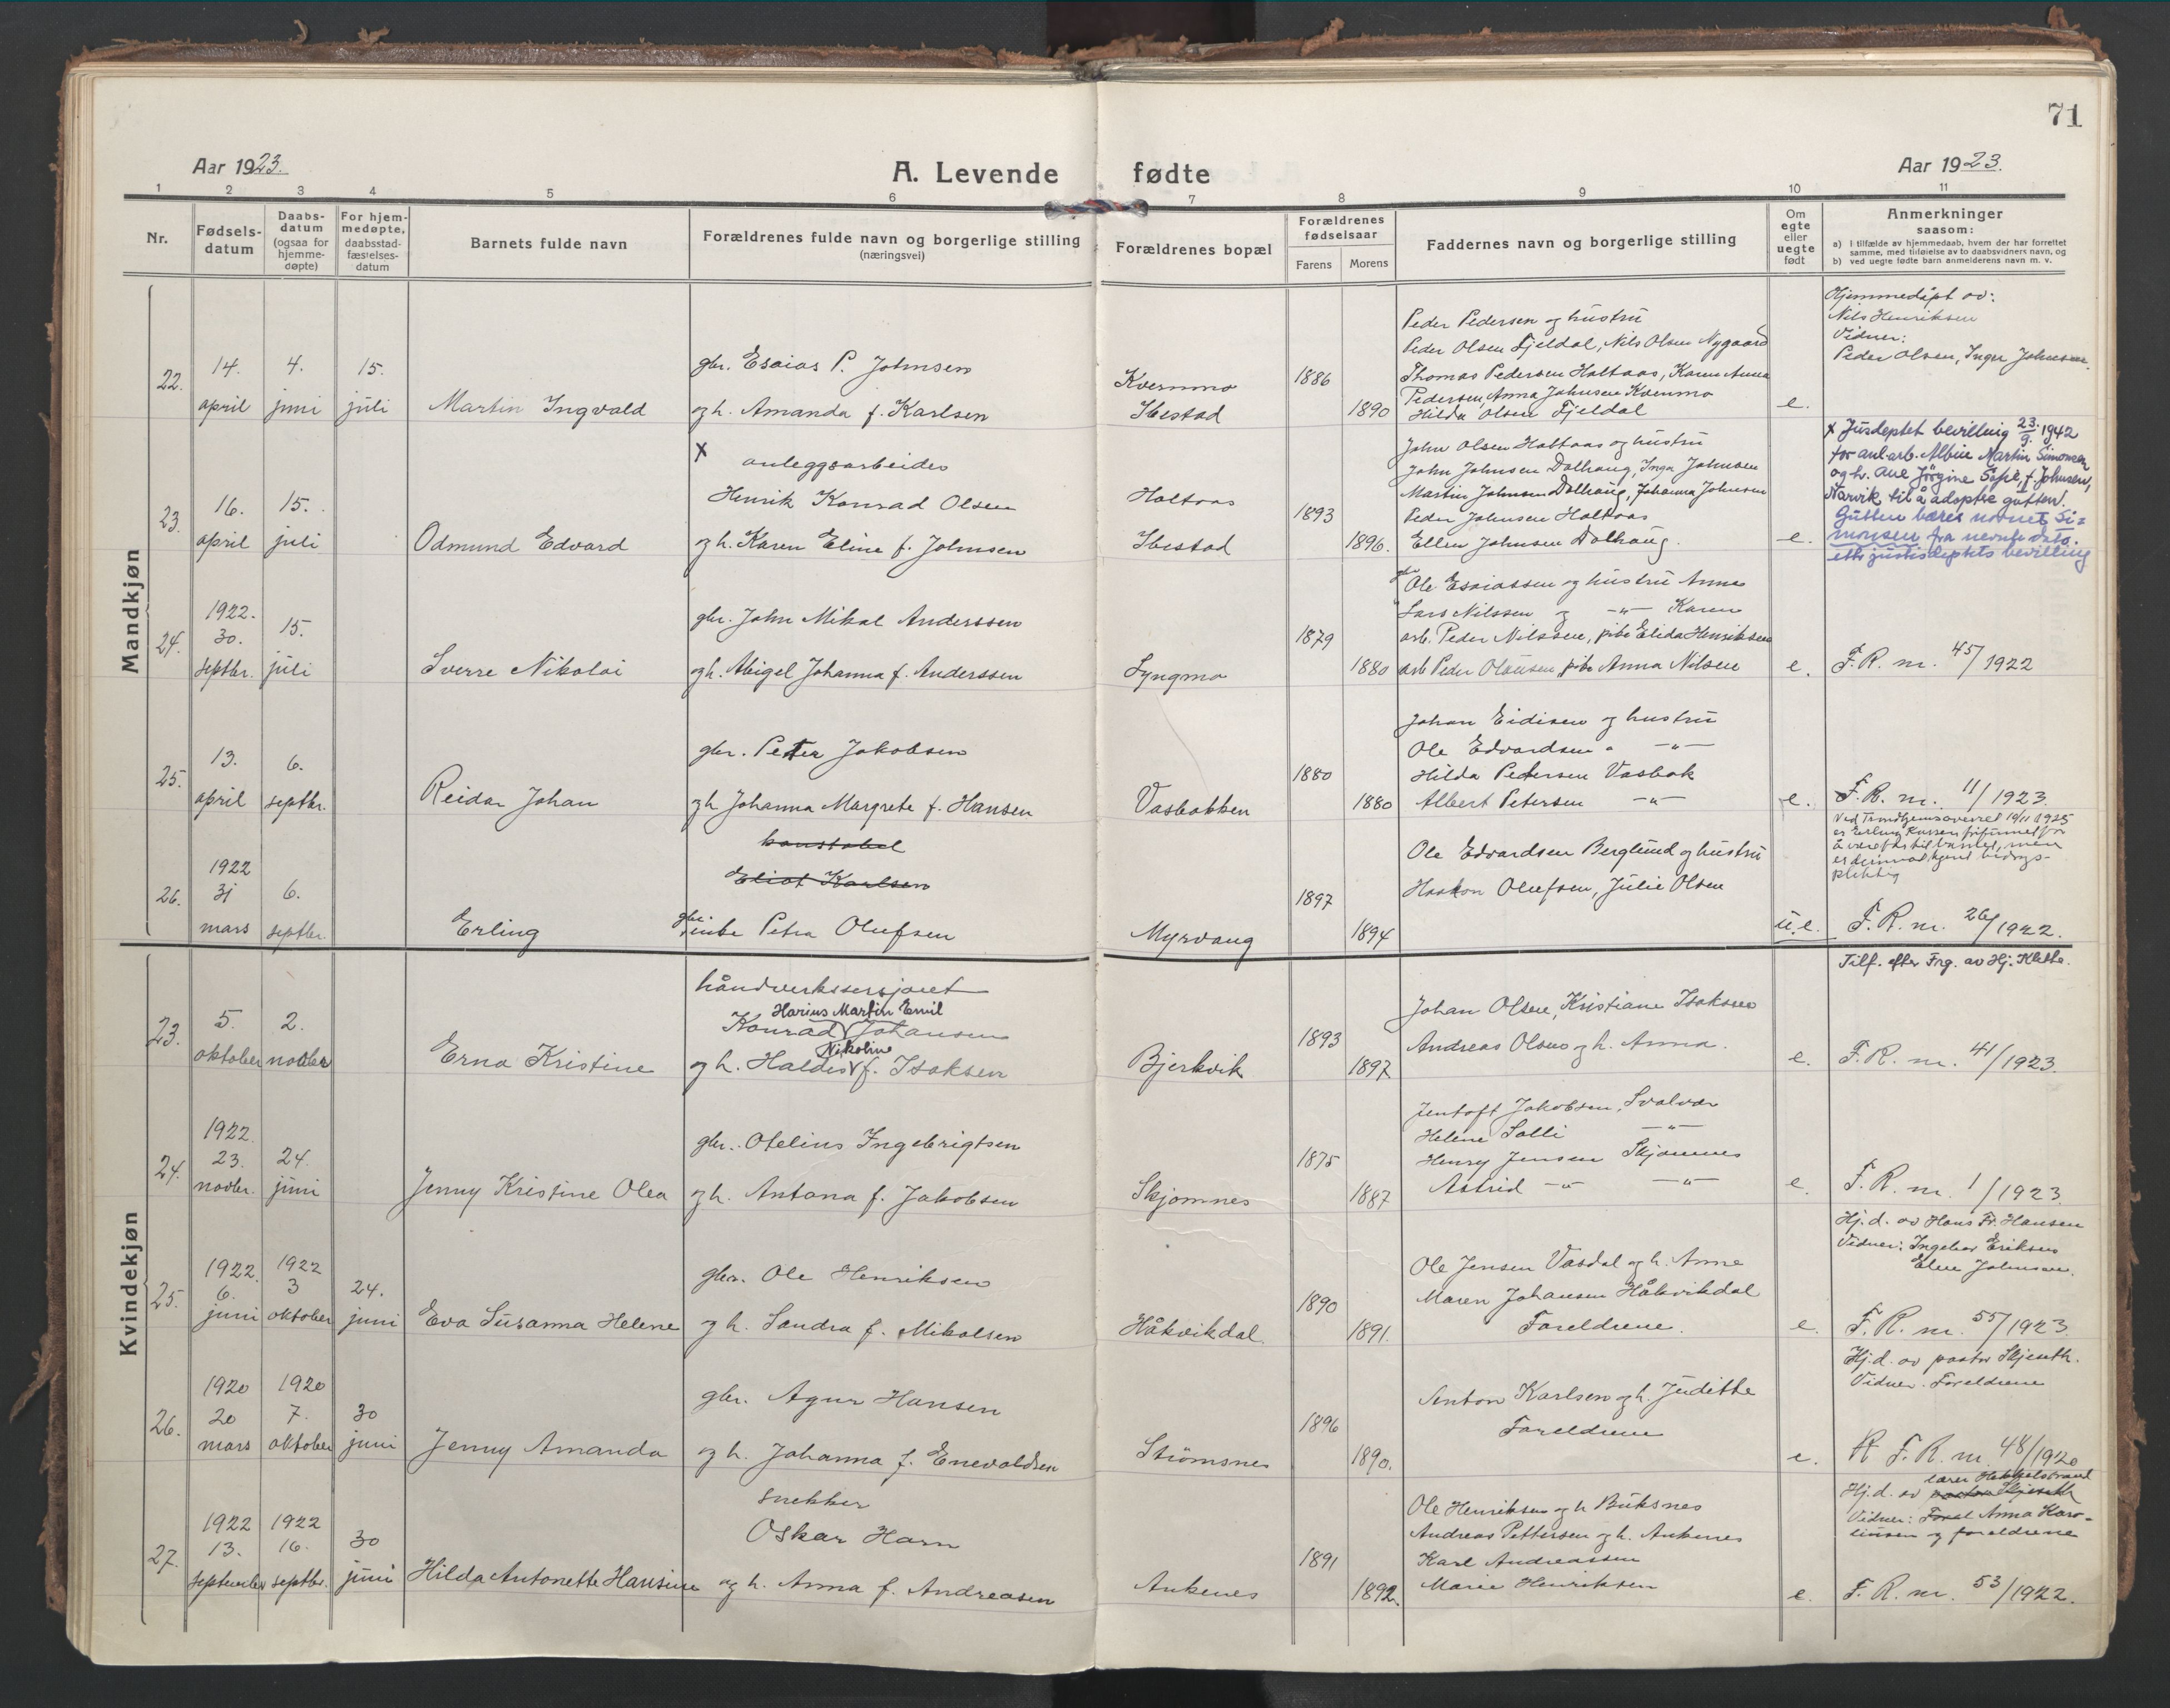 71
Aar 1923.
A. Levende fødte
Aar 1923.
1 2 3 4 5 6 7 8 9 10 11
Nr.
Fødsels-
datum
Daabs-
datum
(ogsaa for
hjemme-
døpte)
For hjem-
medøpte,
daabsstad-
fæstelses-
datum
Barnets fulde navn
Forældrenes fulde navn og borgerlige stilling
(næringsvei)
Forældrenes bopæl
Forældrenes
fødselsaar
Farens Morens
Faddernes navn og borgerlige stilling
Om
egte
eller
uegte
født
Anmerkninger
saasom:
a) I tilfælde av hjemmedaab, hvem der har forrettet
samme, med tilføielse av to daabsvidners navn, og
b) ved uegte fødte barn anmelderens navn m. v.
Mandkjøn
22.
14.
april
4.
juni
15.
juli
Martin Ingvald
gbr. Esaias P. Johnsen
og h. Amanda f. Karlsen
Kvernmo
Ibestad
1886
1890
Peder Pedersen og hustru
Peder Olsen Fjeldal, Nils Olsen Nygaard
Thomas Pedersen Holtaas, Karen Anna
Pedersen, Anna Johnsen Kvernmo
Hilda Olsen Fjeldal
e.
Hjemmedøpt av:
Nils Henriksen
Vidner:
Peder Olsen, Inger Johnsen.
23.
16.
april
15.
juli
Odmund Edvard
x
anleggsarbeider
Henrik Konrad Olsen
og h. Karen Eline f. Johnsen
Holtaas
Ibestad
1893
1896.
John Olsen Holtaas og hustru
John Johnsen Dalhaug, Inga Johnsen
Martin Johnsen Dalhaug, Johanna Johnsen
Peder Johnsen Holtaas
Ellen Johnsen Dalhaug.
e.
x Jusdeptet bevilling 23/9. 1942
for anl.arb. Albin Martin Simonsen
og h. Ane Jörgine Sofie, f. Johnsen,
Narvik til å adoptere gutten.
Gutten bærer navnet Si=
monsen fra nevnte dato.
etter justisdeptets bevilling
24.
1922.
30.
septbr.
15.
juli
Sverre Nikolai
gbr. John Mikal Anderssen
og h. Abigel Johanna f. Anderssen
Lyngmo
1879
1880
gbr Ole Esaiassen og hustru Anne
" Lars Nilssen og -"- Karen
arb. Peder Nilssen, pike Elida Henriksen
arb Peder Olausen, pike Anna Nilsen
e.
F. R. nr. 45/1922
25.
13.
april
6.
septbr.
Reidar Johan
gbr. Peter Jakobsen
og h Johanna Margrete f. Hansen
Vasbakken
1880
1880
Johan Eidisen og hustru
Ole Edvardsen " -"-
Hilda Petersen Vasbak
Albert Petersen -"-
e.
F. R. nr. 11/1923.
26.
1922
31
mars
6.
septbr
Erling
konstabel
Eliot Karlsen
pike Petra Olufsen
Myrvang
1897
1894
Ole Edvardsen Berglund og hustru
Haakon Olufsen, Julie Olsen
u.e.
F. R. nr. 26/1922.
Kvindekjøn
23.
5.
oktober
2.
novber
Erna Kristine
håndverkssersjant
Harius Martin Emil
Konrad Johansen
Nikoline
og h. Haldis f. Isaksen
Bjerkvik
1893
1897
Johan Olsen, Kristiane Isaksen
Andreas Olsen og h. Anna.
e.
Tilf. efter Frg. av Hj. Klette.
F. R. nr. 41/1923.
24.
1922.
23.
novbr.
24.
juni
Jenny Kristine Olea
gbr. Otelius Ingebrigtsen
og h. Antona f. Jakobsen
Skjomnes
1875
1887
Jentoft Jakobsen, Svolvær
Helene Solli -"-
Henry Jensen Skjomnes
Astrid -"- -"-
e.
F. R. nr. 1/1923.
25.
1922.
6.
juni
1922
3
oktober
24.
juni
Eva Susanna Helene
gbr. Ole Henriksen
og h. Sandra f. Mikalsen
Håkvikdal.
1890
1891.
Ole Jensen Vasdal og h. Anne
Maren Johansen Håkvikdal
Foreldrene.
e.
Hj.d. av Hans Fr. Hansen
Vidner: Ingebor Eriksen
Eline Johnsen.
F. R. nr. 55/1923.
26.
1920
20
mars
1920
7.
oktober
30
juni
Jenny Amanda
gbr. Agur Hansen
og h. Johanna f. Enevoldsen
Strömsnes
1896
1890.
Anton Karlsen og h. Judithe
Foreldrene
e.
Hj.d. av pastor Skjeseth.
Vidner. Foreldrene
F. R. nr. 48/1920
27.
1922
13.
september
1922
16.
septbr.
30
juni
Hilda Antonette Hansine
snekker
Oskar Harn
og h. Anna f. Andreasen
Ankenes
1891
1892.
Ole Henriksen og h Buksnes
Andreas Pettersen og h. Ankenes
Karl Andreassen
Marie Henriksen
e.
Hj.d. av pastor Skjeseth
Vidner: Forel Anna Karo-
linsen og foreldrene
F. R. nr. 53/1922.